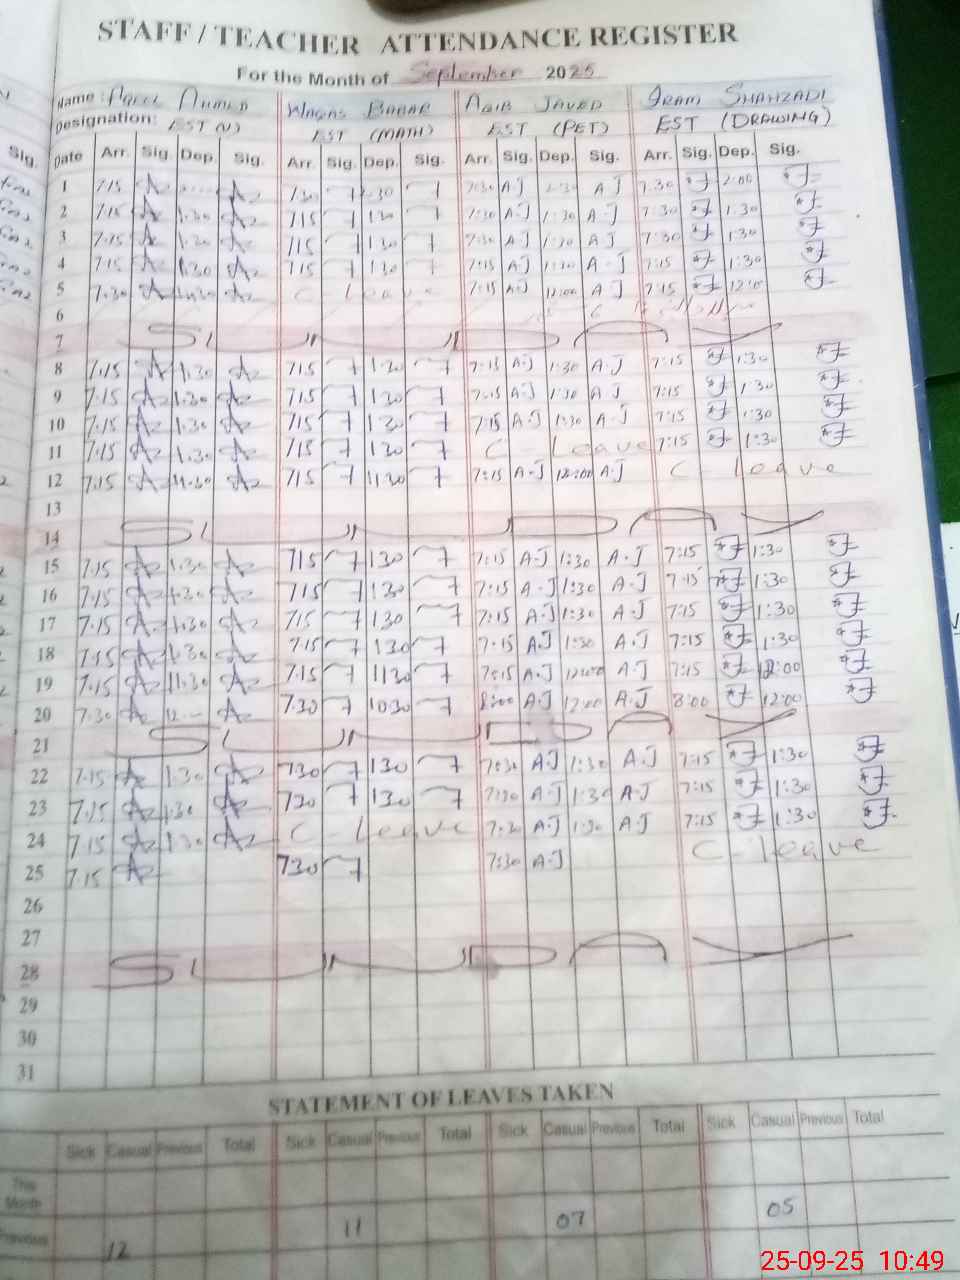 STAFF / TEACHER ATTENDANCE REGISTER
For the Month of September 2025
Name : Aqeel Ahmed Waqas Babar Aqib Javed Iram Shahzadi
Designation: EST (V) EST (MATH) EST (PET) EST (DRAWING)
Sig. Date Arr. Sig. Dep. Sig. Arr. Sig. Dep. Sig. Arr. Sig. Dep. Sig. Arr. Sig. Dep. Sig.
1 7.15 7.30 7:30 A.J A J 7.30 2:00
2 7.15 1.30 715 130 7:30 A.J 1:30 A J 7:30 1:30
3 7.15 1.30 715 130 7:30 A.J 1:30 A J 7:30 1:30
4 7.15 1.30 715 130 7:15 A.J 1:30 A.J 7:15 1:30
5 7.30 C - Leave 7:15 A.J 12:00 A J 7:15 12:0
6
7 S U N D A Y
8 7.15 1.30 715 130 7:15 A.J 1:30 A.J 7:15 1:30
9 7.15 1.30 715 130 7:15 A.J 1:30 A.J 7:15 1:30
10 7.15 1.30 715 130 7:15 A.J 1:30 A.J 7:15 1:30
11 7.15 1.30 715 130 C - Leave 7:15 1:30
12 7.15 11.30 715 1130 7:15 A.J 12:00 A.J C - leave
13
14 S U N D A Y
15 7.15 1.30 715 130 7:15 A.J 1:30 A.J 7:15 1:30
16 7.15 1.30 715 130 7:15 A.J 1:30 A.J 7:15 1:30
17 7.15 1.30 715 130 7:15 A.J 1:30 A.J 7:15 1:30
18 7.15 1.30 7.15 130 7:15 A.J 1:30 A.J 7:15 1:30
19 7.15 11.30 7.15 1130 7:15 A.J 12:00 A.J 7:15 12:00
20 7.30 12 7.30 1030 8:00 A.J 12:00 A.J 8:00 12:00
21 S U N D A Y
22 7.15 1.30 730 130 7:30 A.J 1:30 A.J 7:15 1:30
23 7.15 1.30 730 130 7:30 A.J 1:30 A.J 7:15 1:30
24 7.15 1.30 C - Leave 7:30 A.J 1:30 A.J 7:15 1:30
25 7.15 730 7:30 A.J C - leave
26
27
28 S U N D A Y
29
30
31
STATEMENT OF LEAVES TAKEN
Sick Casual Previous Total Sick Casual Previous Total Sick Casual Previous Total Sick Casual Previous Total
This Month
Previous 12 11 07 05
25-09-25 10:49